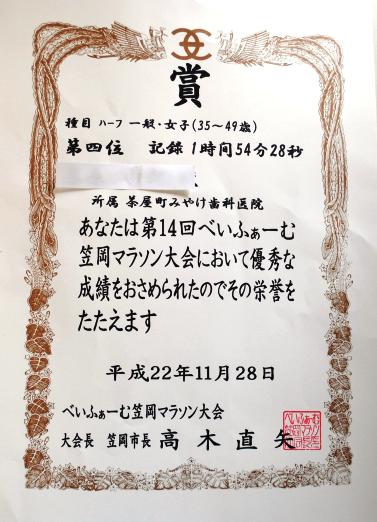 賞
種目 ハーフ 一般・女子(35〜49歳)
第四位 記録 1時間54分28秒
所属 茶屋町みやけ歯科医院
あなたは第14回べいふぁーむ
笠岡マラソン大会において優秀な
成績をおさめられたのでその栄誉を
たたえます
平成22年11月28日
べいふぁーむ笠岡マラソン大会
大会長 笠岡市長 高木直矢